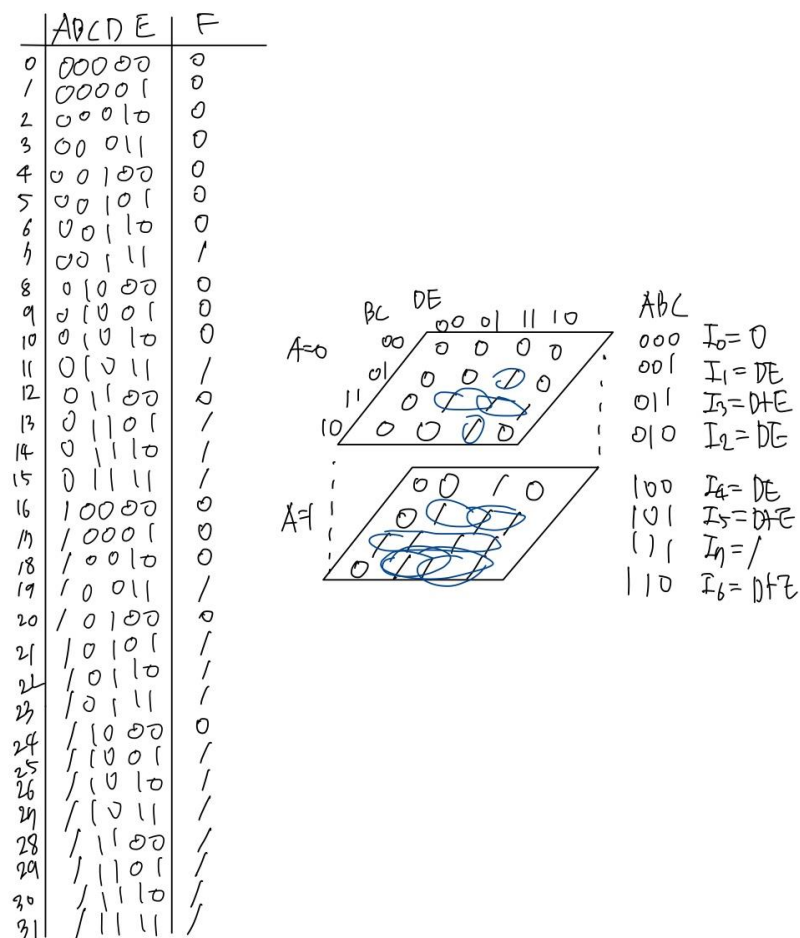 ABCDE F
0 00000 0
1 00001 0
2 00010 0
3 00011 0
4 00100 0
5 00101 0
6 00110 0
7 00111 1
8 01000 0
9 01001 0
10 01010 0
11 01011 1
12 01100 0
13 01101 1
14 01110 1
15 01111 1
16 10000 0
17 10001 0
18 10010 0
19 10011 1
20 10100 0
21 10101 1
21 10110 1
23 10111 1
24 11000 0
25 11001 1
26 11010 1
27 11011 1
28 11100 1
29 11101 1
30 11110 1
31 11111 1
BC DE
00 01 11 10
A=0
00 0 0 0 0
01 0 0 1 0
11 0 1 1 1
10 0 0 1 0
A=1
0 0 1 0
0 1 1 1
1 1 1 1
0 1 1 1
ABC
000 I0=0
001 I1=DE
011 I3=D+E
010 I2=DE
100 I4=DE
101 I5=D+E
111 I7=1
110 I6=D+E